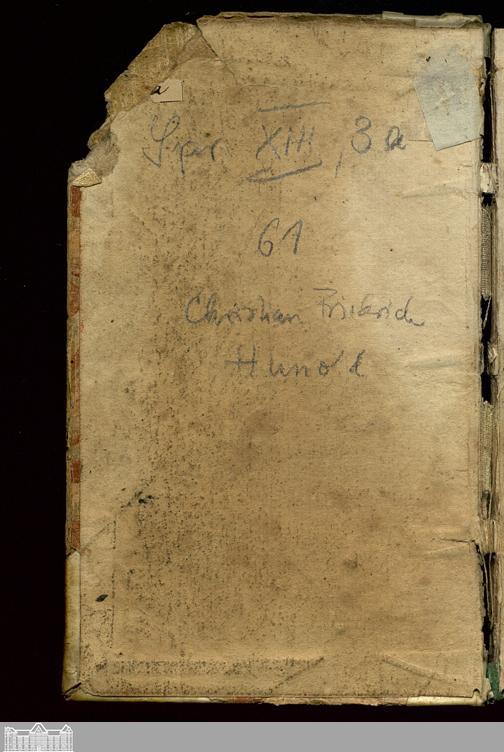 a
XIII, 3 a
61
Christian Friedrich
Hunold